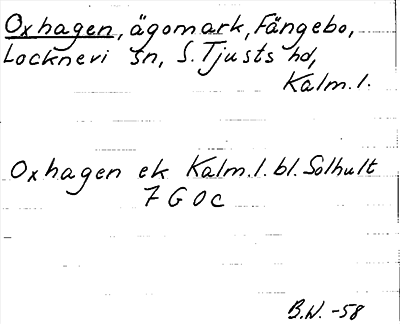 Oxhagen, ägomark, Fängebo,
Locknevi sn, S. Tjusts hd,
Kalm. l.
Oxhagen ek Kalm. l. bl. Solhult
7 G 0 c
B.W. -58